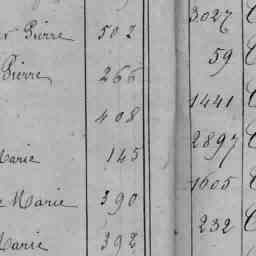 Pierre 502
Pierre 266
408
Marie 145
Marie 390
Marie 392
3027
59
1441
2897
1605
232